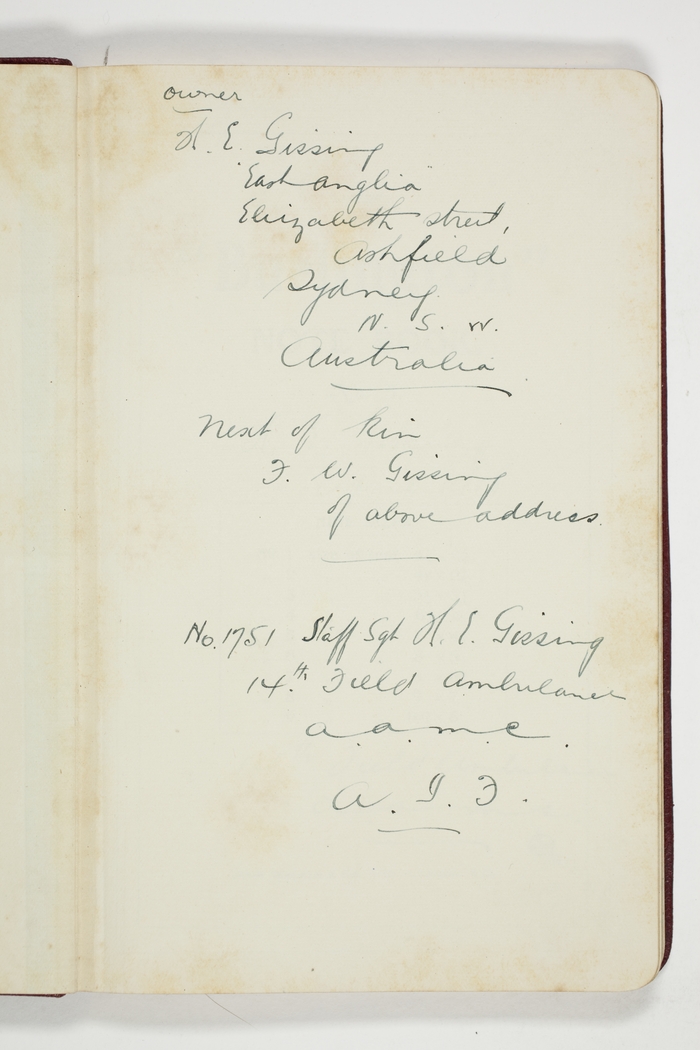 owner
H. E. Gissing
"East Anglia"
Elizabeth street,
Ashfield
Sydney.
N. S. W.
Australia
Next of kin
F. W. Gissing
of above address.
No. 1751 Staff Sgt H. E. Gissing
14.th Field Ambulance
A. A. M. C.
A. I. F.